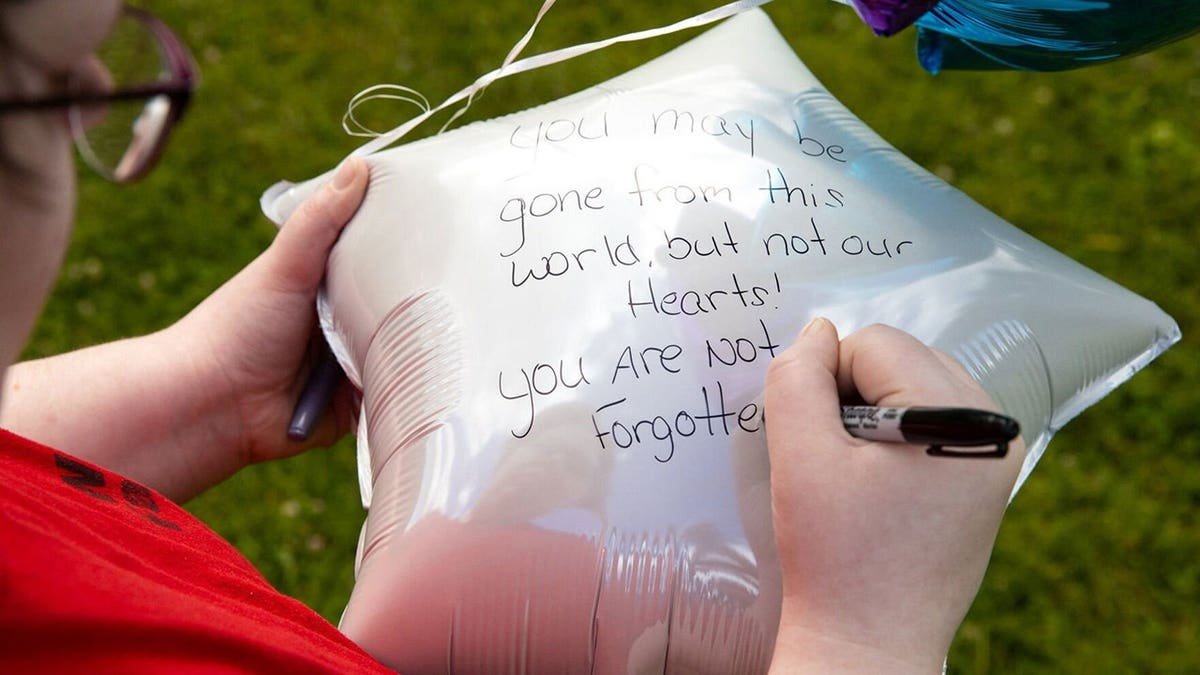 you may be
gone from this
world, but not our
Hearts!
you Are Not
Forgotte